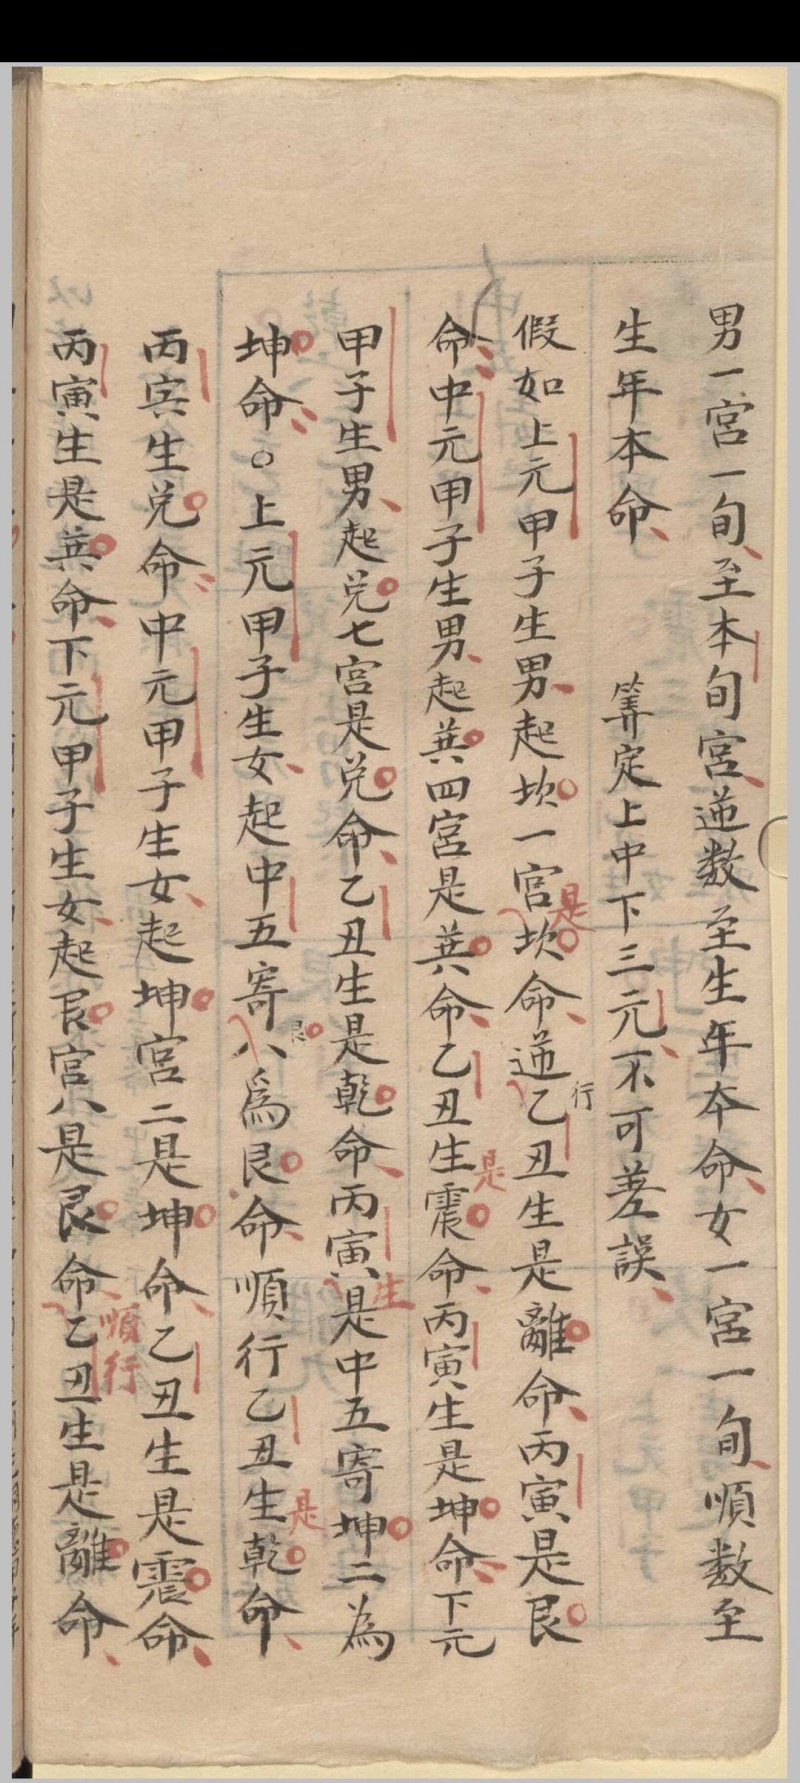 男一宮一旬至本旬宮逆数至生年本命女一宮一旬順数至
生年本命　　筭定上中下三元不可差誤
假如上元甲子生男起坎一宮是坎命逆行乙丑生是離命丙寅是艮
命中元甲子生男起巽四宮是巽命乙丑生是震命丙寅生是坤命下元
甲子生男起兑七宮是兑命乙丑生是乾命丙寅生是中五寄坤二為
坤命○上元甲子生女起中五寄艮八爲艮命順行乙丑生是乾命
丙寅生兑命中元甲子生女起坤宮二是坤命乙丑生是震命
丙寅生是巽命下元甲子生女起艮宮八是艮命順行乙丑生是離命